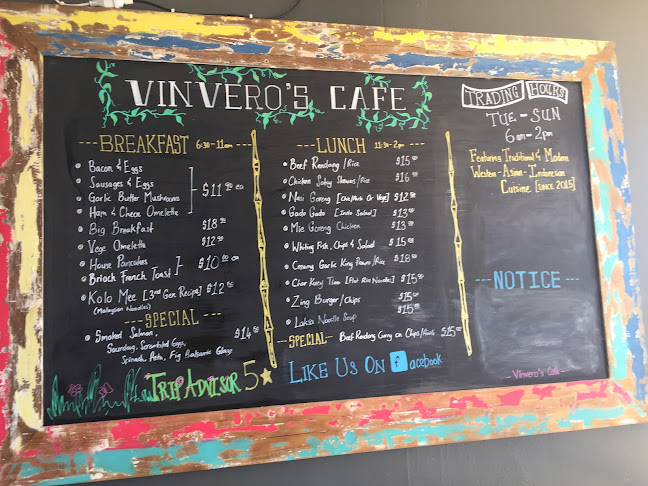 VINVERO'S CAFE
BREAKFAST 6:30-11am
Bacon & Eggs
Sausages & Eggs
Garlic Butter Mushrooms
Ham & Cheese Omelette
$11.90 ea
Big Breakfast $18.90
Vege Omelette $12.90
House Pancakes
Brioch French Toast
$10.90 ea
Kolo Mee [3rd Gen. Recipe] $12.90
(Malaysian Noodles)
SPECIAL
Smoked Salmon, $14.50
Sourdoug, Scrambled Eggs,
Spinach, Feta, Fig Balsamic Glaze
TRIP ADVISOR 5
LUNCH 11:30-2pm
Beef Rendang/Rice $15
Chicken Satay Skewers/Rice $16
Nasi Goreng [Chic/Pork Or Vege] $12
Gado Gado [Indo Salad] $13
Mie Goreng Chicken $13
Whiting Fish, Chips & Salad $15
Creamy Garlic King Prawns/Rice $16
Char Kuey Tiao [Flat Rice Noodles] $15
Zing Burger/Chips $15
Laksa Noodle Soup $15
SPECIAL Beef Rendang Curry on Chips $15
LIKE US ON facebook
TRADING HOURS
TUE - SUN
6am - 2pm
Featuring Traditional & Modern
Western - Asian - Indonesian
Cuisine [SINCE 2015]
NOTICE
- Vinvero's Café -